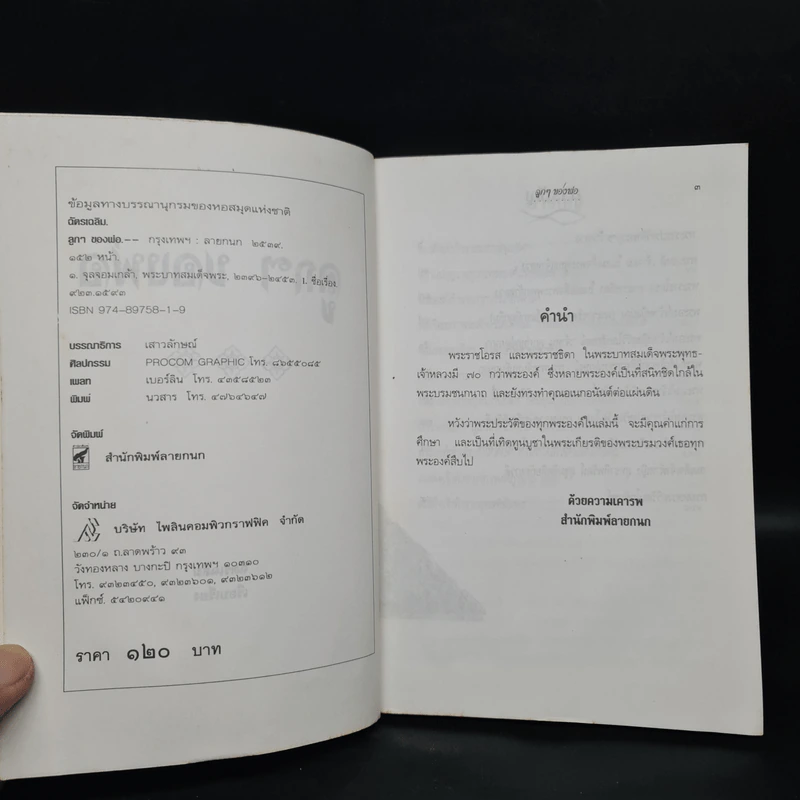 ข้อมูลทางบรรณานุกรมของหอสมุดแห่งชาติ
ฉัตรเฉลิม.
ลูกๆ ของพ่อ.-- กรุงเทพฯ : ลายกนก ๒๕๓๙.
๑๕๒ หน้า.
๑. จุลจอมเกล้า, พระบาทสมเด็จพระ, ๒๓๙๖-๒๔๕๓. I. ชื่อเรื่อง.
๙๒๓.๑๕๙๓
ISBN 974-89758-1-9
บรรณาธิการ เสาวลักษณ์
ศิลปกรรม PROCOM GRAPHIC โทร. ๘๖๕๕๐๘๕
เพลท เบอร์ลิน โทร. ๔๓๕๘๕๒๓
พิมพ์ นวสาร โทร. ๔๗๖๔๖๔๗
จัดพิมพ์
สำนักพิมพ์ลายกนก
จัดจำหน่าย
บริษัท ไพลินคอมพิวกราฟฟิค จำกัด
๒๓๐/๑ ถ.ลาดพร้าว ๙๓
วังทองหลาง บางกะปิ กรุงเทพฯ ๑๐๓๑๐
โทร. ๙๓๒๓๔๕๐, ๙๓๒๓๖๐๑, ๙๓๒๓๖๑๒
แฟ็กซ์. ๕๔๒๐๙๔๑
ราคา ๑๒๐ บาท
ลูกๆ ของพ่อ ๓
คำนำ
พระราชโอรส และพระราชธิดา ในพระบาทสมเด็จพระพุทธ-
เจ้าหลวงมี ๗๐ กว่าพระองค์ ซึ่งหลายพระองค์เป็นที่สนิทชิดใกล้ใน
พระบรมชนกนาถ และยังทรงทำคุณอเนกอนันต์ต่อแผ่นดิน
หวังว่าพระประวัติของทุกพระองค์ในเล่มนี้ จะมีคุณค่าแก่การ
ศึกษา และเป็นที่เทิดทูนบูชาในพระเกียรติของพระบรมวงศ์เธอทุก
พระองค์สืบไป
ด้วยความเคารพ
สำนักพิมพ์ลายกนก